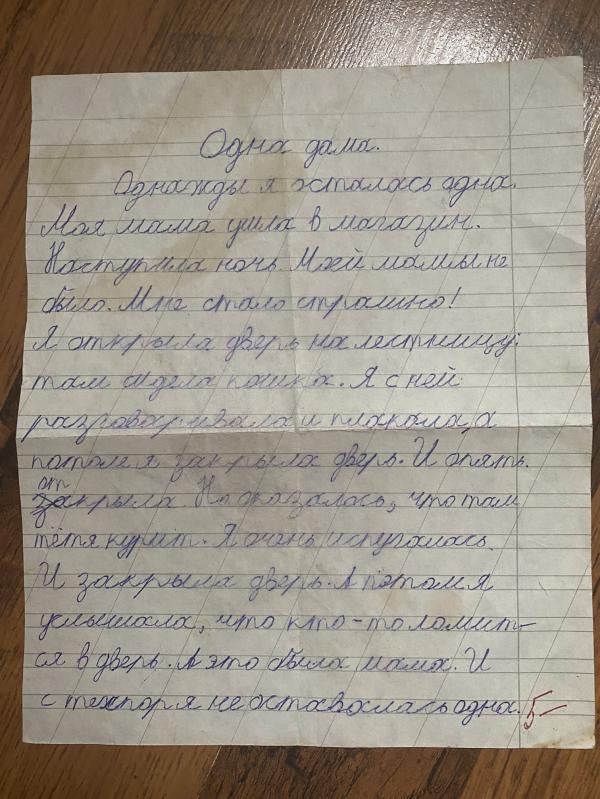 Одна дома.
Однажды я осталась одна.
Моя мама ушла в магазин.
Наступила ночь. Моей мамы не
было. Мне стало страшно!
Я открыла дверь на лестницу:
там сидела кошка. Я с ней
разговаривала и плакала, а
потом я закрыла дверь. И опять
открыла. Но оказалось, что там
тётя курит. Я очень испугалась.
И закрыла дверь. А потом я
услышала, что кто-то ломит-
ся в дверь. А это была мама. И
с тех пор я не оставалась одна. 5-